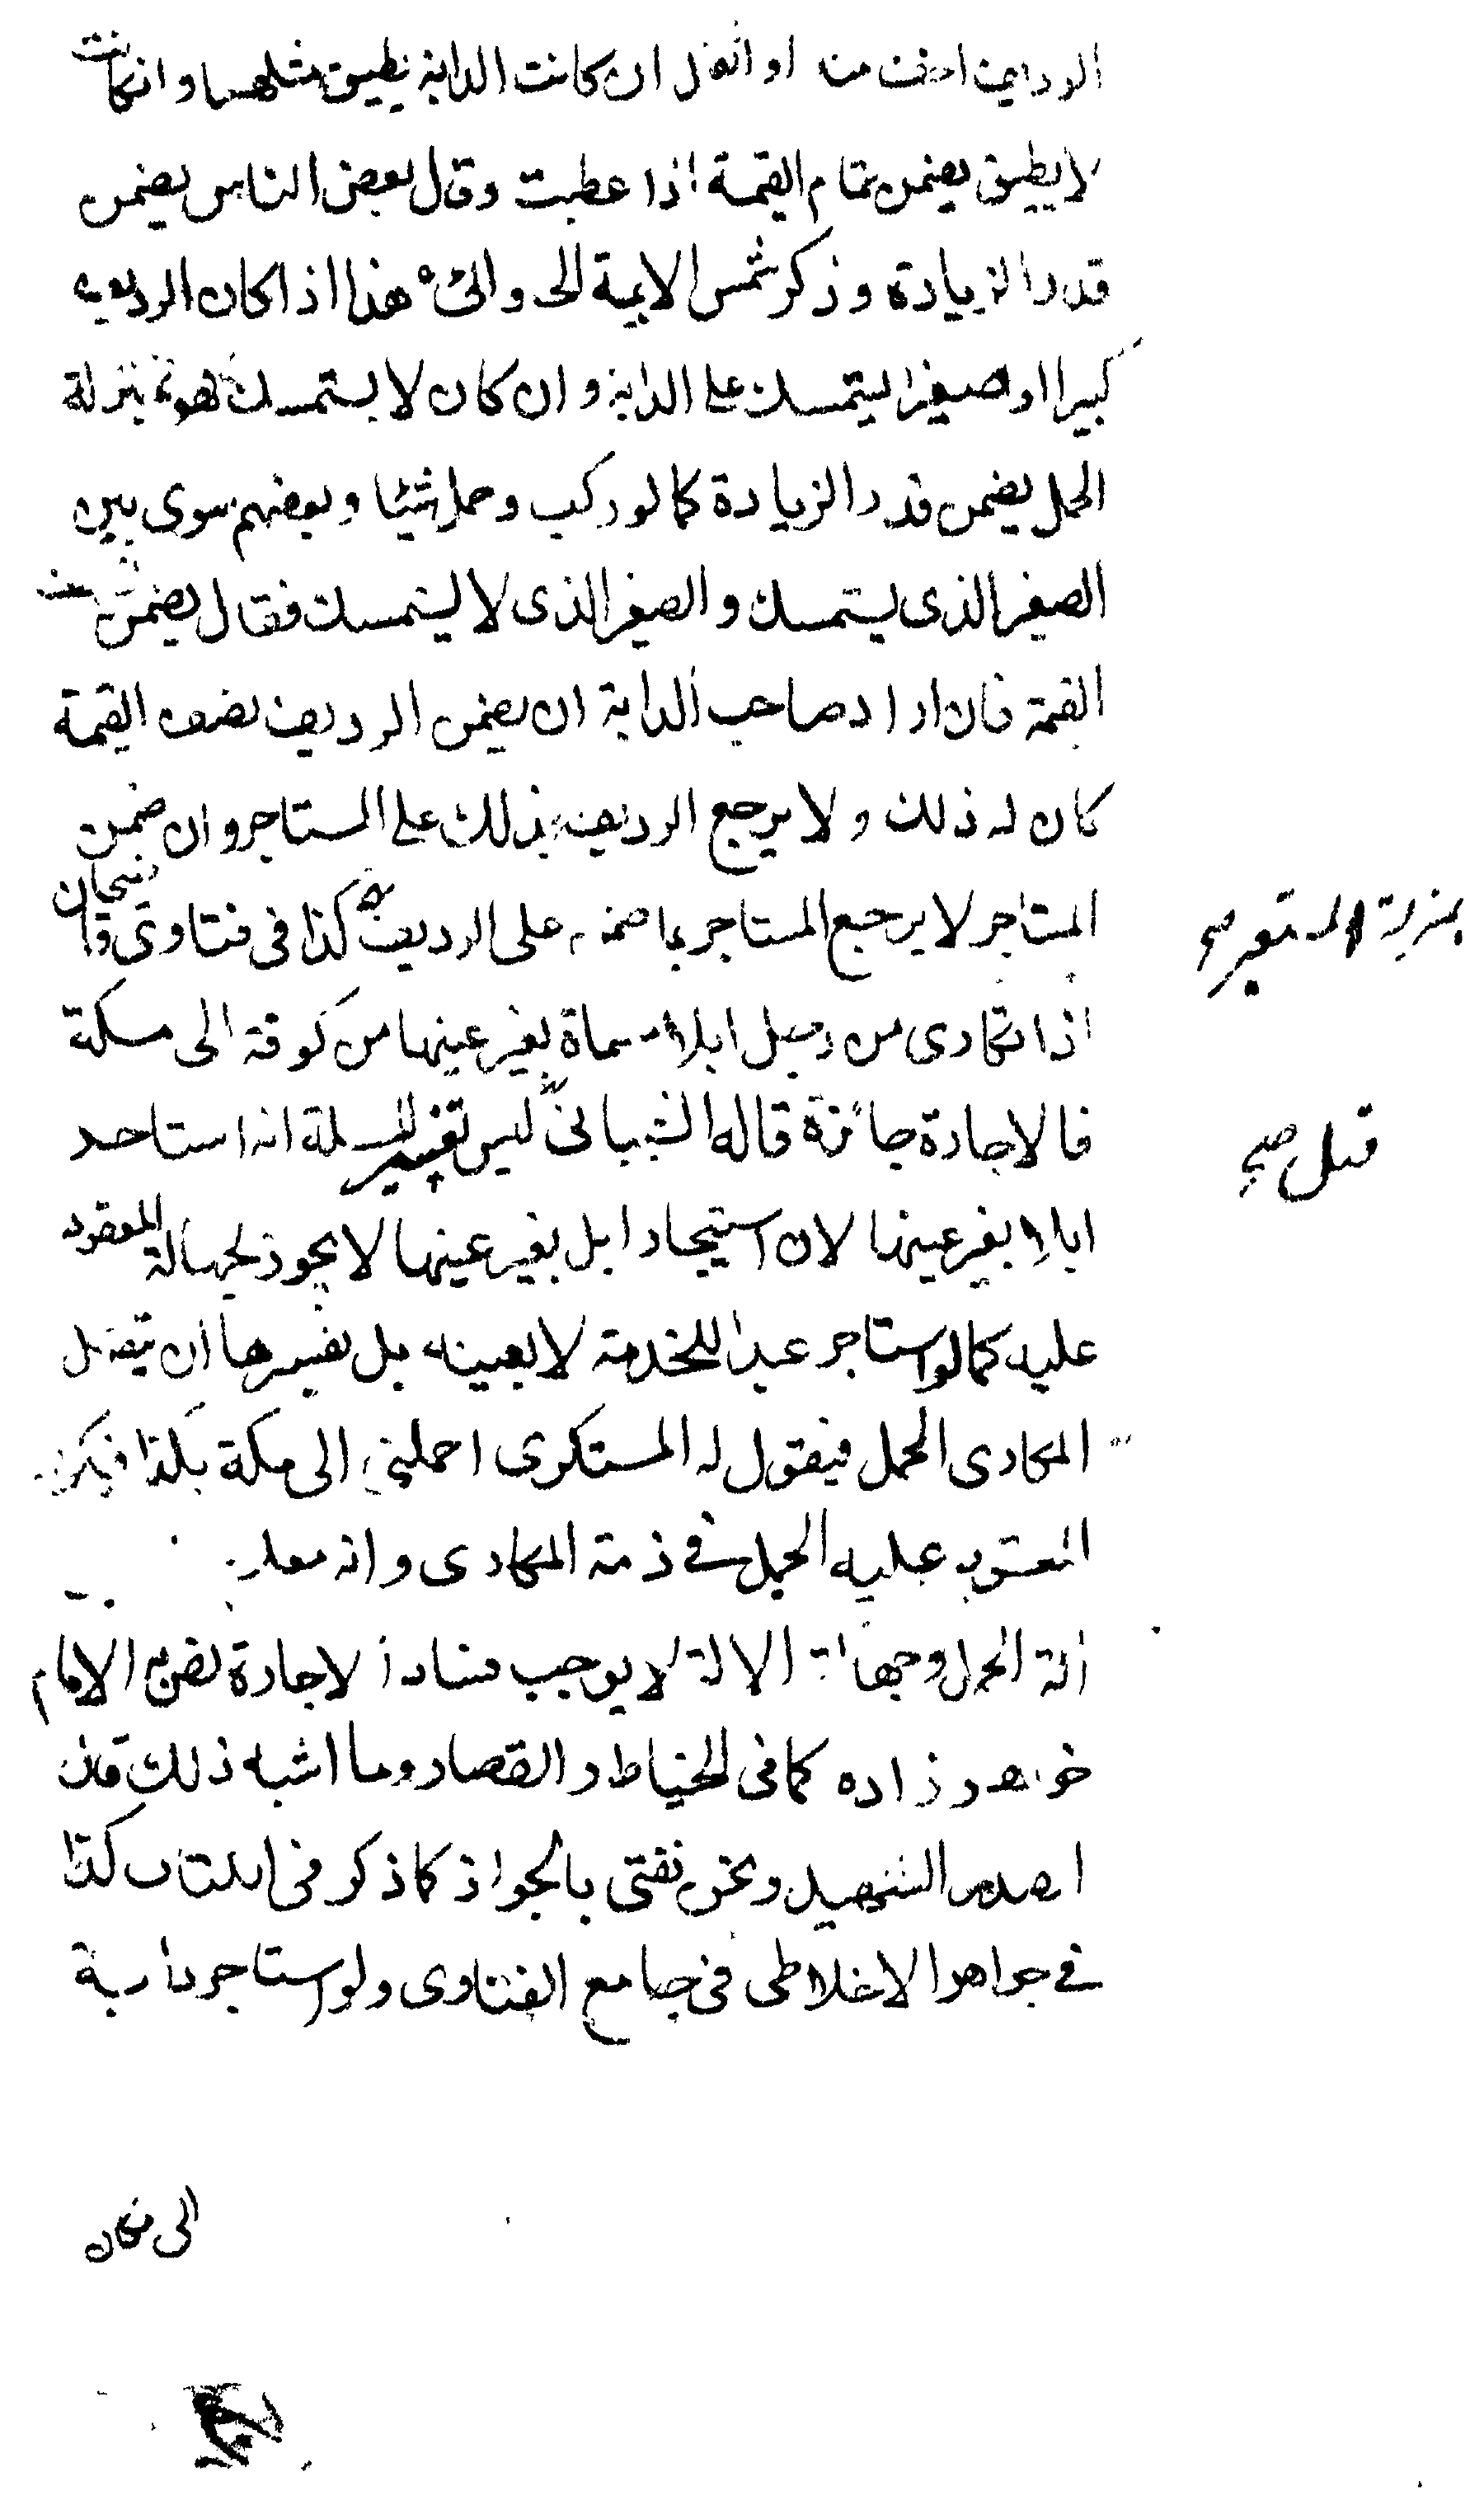 الرديف اخف منه او اثقل ان كانت الدابة يطيق مثلهما وان كانت
لا يطيق يضمن تمام القيمة اذا عطبت وقال بعض الناس يضمن
قدر الزيادة وذكر شمس الايمة الحلوائى هذا اذا كان الرديف
كبيرا او صغيرا يستمسك على الدابة وان كان لا يستمسك فهو بمنزلة
الحمل يضمن قدر الزيادة كما لو ركب وحمل شيئا وبعضهم سوى بين
الصغير الذى يستمسك والصغير الذى لا يستمسك فقال يضمن نصف
القيمة فان اراد صاحب الدابة ان يضمن الرديف نصف القيمة
كان له ذلك ولا يرجع الرديف بذلك على المستاجر وان ضمن
المستاجر لا يرجع المستاجر بما ضمنه على الرديف كذا فى فتاوى قاضيخان
بمنزلة المستعير صح
اذا تكارى من رجل ابلا مسماة بغير عينها من كوفة الى مكة
فالاجارة جائزة قاله الشيبانى ليس تفسير المسئلة انه استاجر
قيل صح
ابلا بغير عينها لان استيجار ابل بغير عينها لا يجوز لجهالة المعقود
عليه كما لو استاجر عبدا للخدمة لا بعينه بل تفسيرها ان يتقبل
المكارى الحمل فيقول له المستكرى احملنى الى مكة بكذا فيكون
المعقود عليه الحمل فى ذمة المكارى وانه معلوم
الة الحمل وجهالة الالة لا يوجب فساد الاجارة نص الامام
خواهر زاده كما فى الخياط والقصار وما اشبه ذلك قال
الصدر الشهيد ونحن نفتى بالجواز كما ذكر فى الكتاب كذا
فى جواهر الاخلاطى فى جامع الفتاوى ولو استاجر دابة
الى مكان